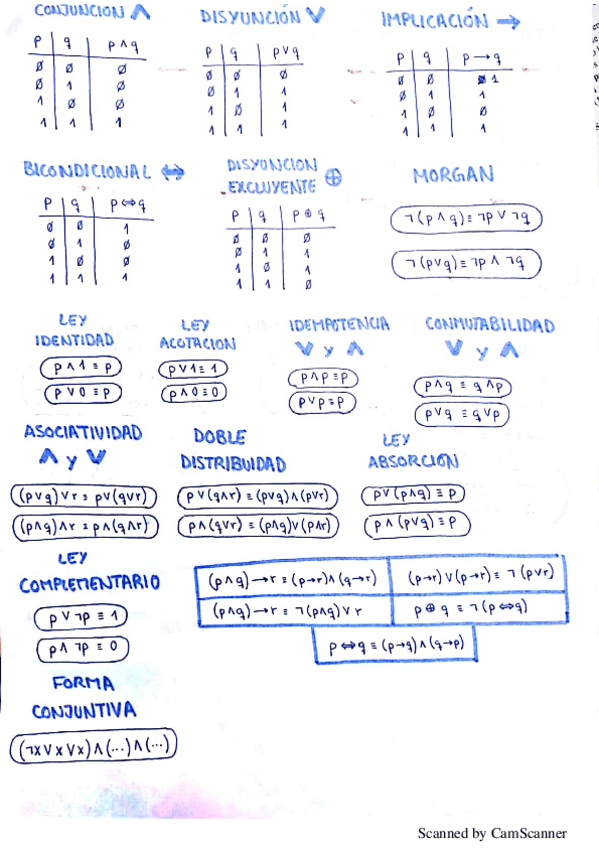 CONJUNCION ∧
p | q | p∧q
Ø | Ø | Ø
Ø | 1 | Ø
1 | Ø | Ø
1 | 1 | 1
DISYUNCIÓN ∨
p | q | p∨q
Ø | Ø | Ø
Ø | 1 | 1
1 | Ø | 1
1 | 1 | 1
IMPLICACIÓN →
p | q | p→q
Ø | Ø | 1
Ø | 1 | 1
1 | Ø | Ø
1 | 1 | 1
BICONDICIONAL ↔
p | q | p⇔q
Ø | Ø | 1
Ø | 1 | Ø
1 | Ø | Ø
1 | 1 | 1
DISYUNCION
EXCLUYENTE ⊕
p | q | p⊕q
Ø | Ø | Ø
Ø | 1 | 1
1 | Ø | 1
1 | 1 | Ø
MORGAN
¬(p∧q)≡¬p∨¬q
¬(p∨q)≡¬p∧¬q
LEY
IDENTIDAD
p∧1≡p
p∨0≡p
LEY
ACOTACION
p∨1≡1
p∧0≡0
IDEMPOTENCIA
∨ y ∧
p∧p≡p
p∨p≡p
CONMUTABILIDAD
∨ y ∧
p∧q≡q∧p
p∨q≡q∨p
ASOCIATIVIDAD
∧ y ∨
(p∨q)∨r≡p∨(q∨r)
(p∧q)∧r≡p∧(q∧r)
DOBLE
DISTRIBUIDAD
p∨(q∧r)≡(p∨q)∧(p∨r)
p∧(q∨r)≡(p∧q)∨(p∧r)
LEY
ABSORCIÓN
p∨(p∧q)≡p
p∧(p∨q)≡p
LEY
COMPLEMENTARIO
p∨¬p≡1
p∧¬p≡0
(p∧q)→r≡(p→r)∧(q→r)
(p→r)∨(p→r)≡¬(p∨r)
(p∧q)→r≡¬(p∧q)∨r
p⊕q≡¬(p⇔q)
p⇔q≡(p→q)∧(q→p)
FORMA
CONJUNTIVA
(¬x∨x∨x)∧(...)∧(...)
Scanned by CamScanner